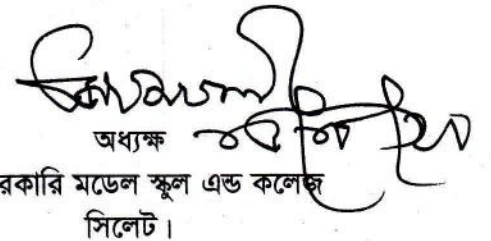 অধ্যক্ষ
রকারি মডেল স্কুল এন্ড কলেজ
সিলেট।